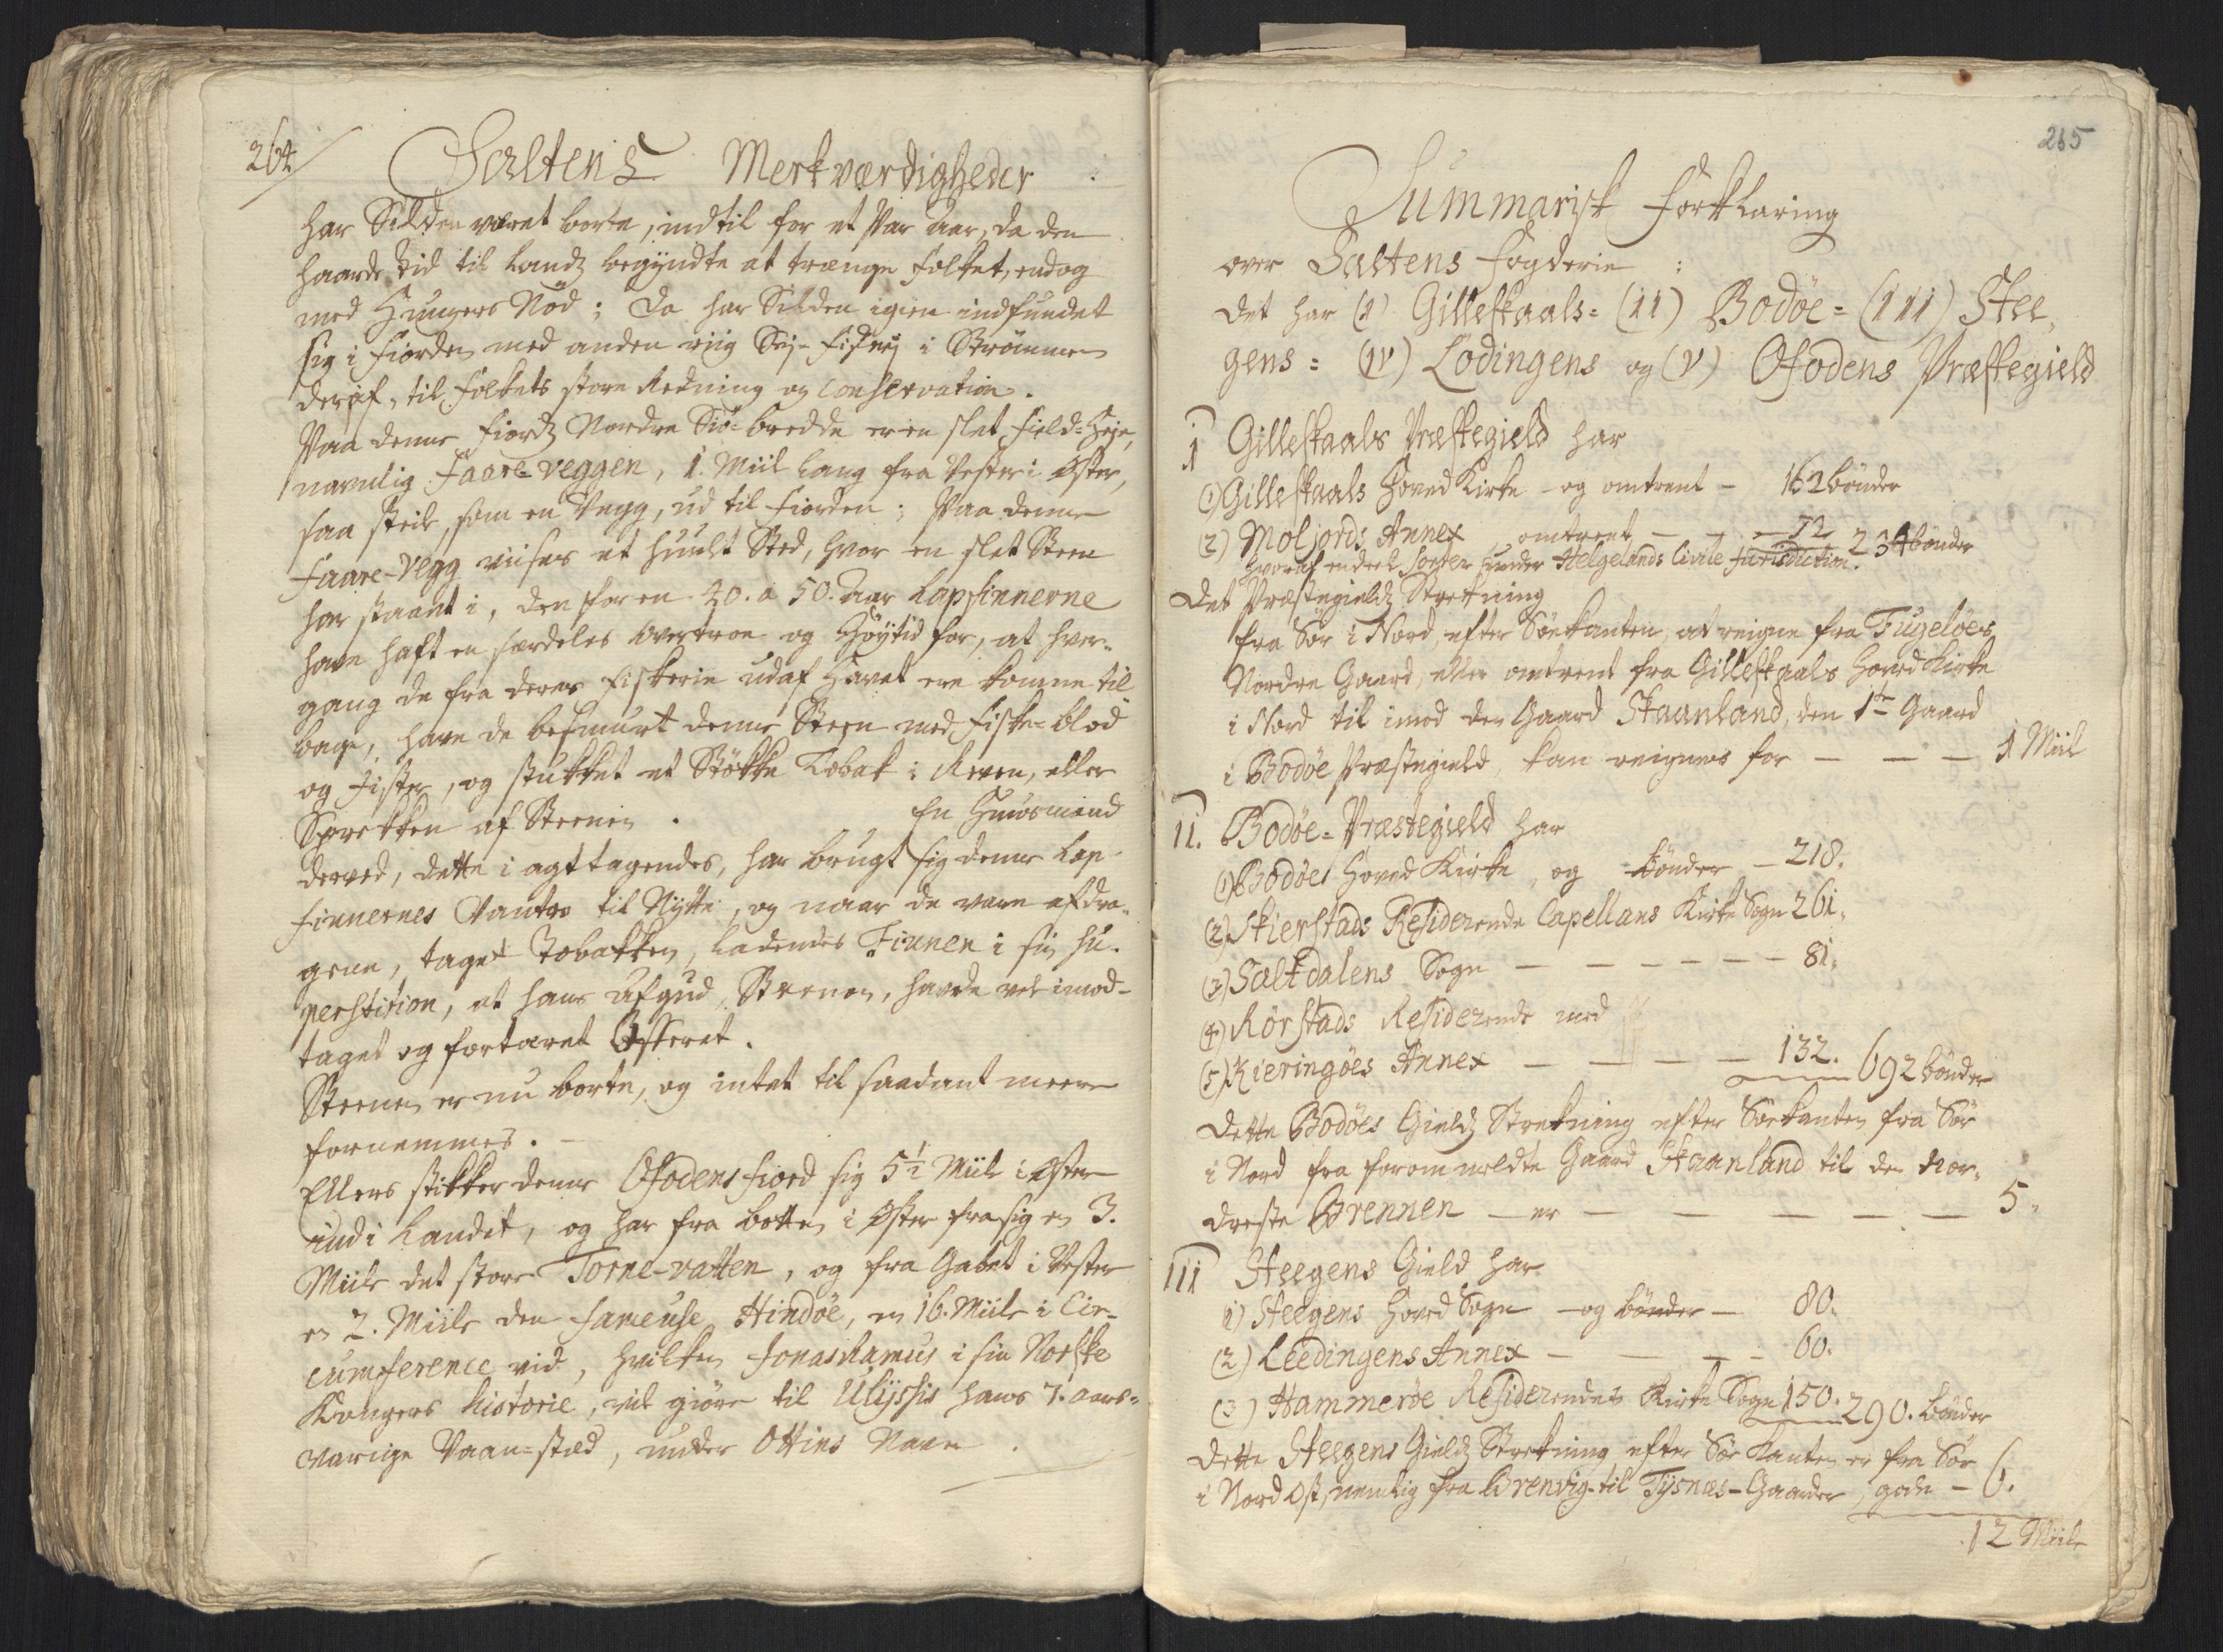 264
Saltens Merkværdigheder
har Silden været borte, indtil for et Par Aar, da den
haarde Tid til Lands begyndte at trænge Folket, endog
med Hungers Nød; da har Silden igien indfundet
sig i Fiorden med anden riig Sej-Fiskerj i Strømmen
deraf, til Folkets store Redning og Conservation.
Paa denne Fiords Nordre Siø-bredde er en slet Field-Høje,
navnlig Faare-veggen, 1. Miil lang fra Vester i Øster,
saa steile, som en Vegg, ud til Fiorden; Paa denne
Faare-Vegg viises et huult Sted, hvor en slet Steen
har staaet i, den for en 40. a 50. Aar Lapfinnerne
have haft en særdeles overtroe og Høytid for, at hver-
gang de fra deres Fiskerie udaf Havet ere komne til
bage, have de besmurt denne Steen med Fiske-blod
og Fister, og stukket et Støkke Tobak i Reven, eller
Sprekken af Steenen. En Huusmand
derved, dette i agttagendes, har brugt sig denne Lap-
finnernes Vantro til Nytte, og naar de vare afdra-
gene, taget Tobakken, ladendes Finnen i sin Su-
perstition, at hans Afgud, Steenen, havde vel imod-
taget og fortæret Offeret.
Steenen er nu borte, og intet til saadant meere
fornemmes. -
Ellers stikker denne Ofodens fiord sig 5½ Miile i Øster
ind i Landet, og har fra botten i Øster fra sig en 3.
Miile det store Torne-vatten, og fra Gabet i Vester
en 2. Miile den fameuse Hindöe, en 16. Miile i Cir-
cumference vid, hvilken Jonas Ramus i sin Norske
Kongers historie, vil giøre til Ulyssis hans 7. aars-
varige Vaan-stæd, under Ottins Navn.
265
Summarisk Forklaring
over Saltens Fogderie :
Det har (1) Gilleskaals= (11) Bodöe= (111) Stee,
gens= (1V) Lödingens og (V) Ofodens Præstegield
1 Gilleskaals Præstegield har
(1) Gilleskaals Hoved Kirke - og omtrent - 162 bönder
(2) Moljords Annex, omtrent - - - 72 234 bönder
hvoraf endeel sorter under Helgelands Civile Jurisdiction.
Det Præstegields Strekning
fra Sør i Nord, efter Söekanten, at reigne fra Fugelöes
Nordre Gaard, eller omtrent fra Gilleskaals Hoved Kirke
i Nord til imod den Gaard Skaanland, den 1te Gaard
i Bodöe Præstegield, kan reignes for - - - 1 Miil
11. Bodöe-Præstegield har
(1) Bodöes Hoved Kirke, og bönder - 218.
(2) Skierstads Residerende Capellans Kirke Sogn 261.
(3) Saltdalens Sogn - - - - - - 81.
(4) Rörstads Residerende med
(5) Kieringöes Annex - - - - 132. 692 bönder
Dette Bodöes Gields Strekning efter Söekanten fra Sør
i Nord fra forommeldte Gaard Skaanland til den Nor-
dreste Brennen - er - - - - - 5.
111 Steegens Gield har
1) Steegens Hoved Sogn - og bönder - 80.
(2) Leedingens Annex - - - - 60.
(3) Hammeröe Residerendes Kirke Sogn 150. 290. bönder
Dette Steegens Gields Strekning efter Söe Kanten er fra Sør
i Nord Ost, nemlig fra Brenvig til Tysnæs-Gaarder, gode - 6.
12 Miile